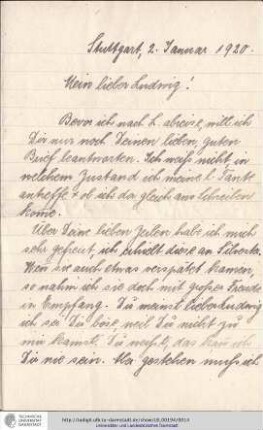 Stuttgart, 2. Januar 1920.
Mein lieber Ludwig!
Bevor ich nach h. abreise, will ich
Dir nur noch Deinen lieben, guten
Brief beantworten. Ich weiß nicht, in
welchem Zustand ich meine l. Tante
antreffe & ob ich da gleich ans Schreiben
kome.
Über Deine lieben Zeilen habe ich mich
sehr gefreut, ich erhielt diese an Silvester.
Wenn sie auch etwas verspätet kamen,
so nahm ich sie doch mit großer Freude
in Empfang. Du meinst lieber Ludwig
ich sei Dir böse, weil Du nicht zu
mir kamst. Du weißt, das kann ich
Dir nie sein. Aber gestehen muß ich
TECHNISCHE
UNIVERSITÄT
DARMSTADT
Universitäts- und Landesbibliothek Darmstadt